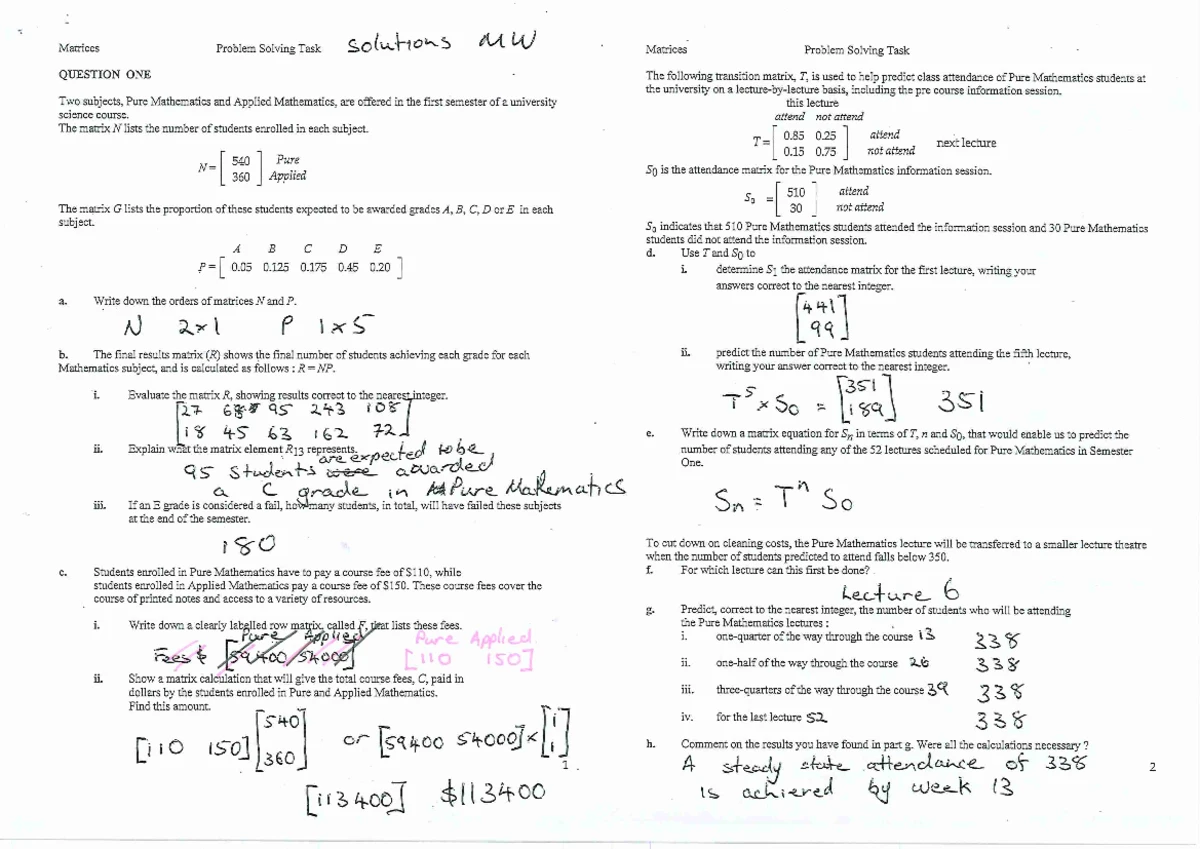 Matrices Problem Solving Task Solutions MW
QUESTION ONE
Two subjects, Pure Mathematics and Applied Mathematics, are offered in the first semester of a university
science course.
The matrix N lists the number of students enrolled in each subject.
N = [ 540 ] Pure
[ 360 ] Applied
The matrix G lists the proportion of these students expected to be awarded grades A, B, C, D or E in each
subject.
A B C D E
P = [ 0.05 0.125 0.175 0.45 0.20 ]
a. Write down the orders of matrices N and P.
N 2×1 P 1×5
b. The final results matrix (R) shows the final number of students achieving each grade for each
Mathematics subject, and is calculated as follows : R = NP.
i. Evaluate the matrix R, showing results correct to the nearest integer.
[27 68 95 243 108]
[18 45 63 162 72]
ii. Explain what the matrix element R13 represents.
are expected to be
95 students were awarded
a C grade in Pure Mathematics
iii. If an E grade is considered a fail, how many students, in total, will have failed these subjects
at the end of the semester.
180
c. Students enrolled in Pure Mathematics have to pay a course fee of $110, while
students enrolled in Applied Mathematics pay a course fee of $150. These course fees cover the
course of printed notes and access to a variety of resources.
i. Write down a clearly labelled row matrix, called F, that lists these fees.
Pure Applied Pure Applied
Fees $ [59400 54000] [110 150]
ii. Show a matrix calculation that will give the total course fees, C, paid in
dollars by the students enrolled in Pure and Applied Mathematics.
Find this amount.
[110 150] [540] or [59400 54000] × [1]
[360] [1]
1
[113400] $113400
Matrices Problem Solving Task
The following transition matrix, T, is used to help predict class attendance of Pure Mathematics students at
the university on a lecture-by-lecture basis, including the pre course information session.
this lecture
attend not attend
T = [ 0.85 0.25 ] attend
[ 0.15 0.75 ] not attend next lecture
S0 is the attendance matrix for the Pure Mathematics information session.
S0 = [ 510 ] attend
[ 30 ] not attend
S0 indicates that 510 Pure Mathematics students attended the information session and 30 Pure Mathematics
students did not attend the information session.
d. Use T and S0 to
i. determine S1 the attendance matrix for the first lecture, writing your
answers correct to the nearest integer.
[441]
[99]
ii. predict the number of Pure Mathematics students attending the fifth lecture,
writing your answer correct to the nearest integer.
T^5 × S0 = [351] 351
[189]
e. Write down a matrix equation for Sn in terms of T, n and S0, that would enable us to predict the
number of students attending any of the 52 lectures scheduled for Pure Mathematics in Semester
One.
Sn = T^n S0
To cut down on cleaning costs, the Pure Mathematics lecture will be transferred to a smaller lecture theatre
when the number of students predicted to attend falls below 350.
f. For which lecture can this first be done?
Lecture 6
g. Predict, correct to the nearest integer, the number of students who will be attending
the Pure Mathematics lectures :
i. one-quarter of the way through the course 13 338
ii. one-half of the way through the course 26 338
iii. three-quarters of the way through the course 39 338
iv. for the last lecture 52 338
h. Comment on the results you have found in part g. Were all the calculations necessary ?
A steady state attendance of 338
is achieved by week 13
2